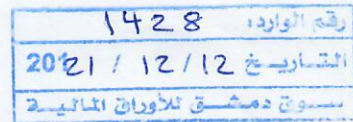 رقم الوارد: 1428
التاريخ 12 / 12 / 2021
سوق دمشق للأوراق المالية